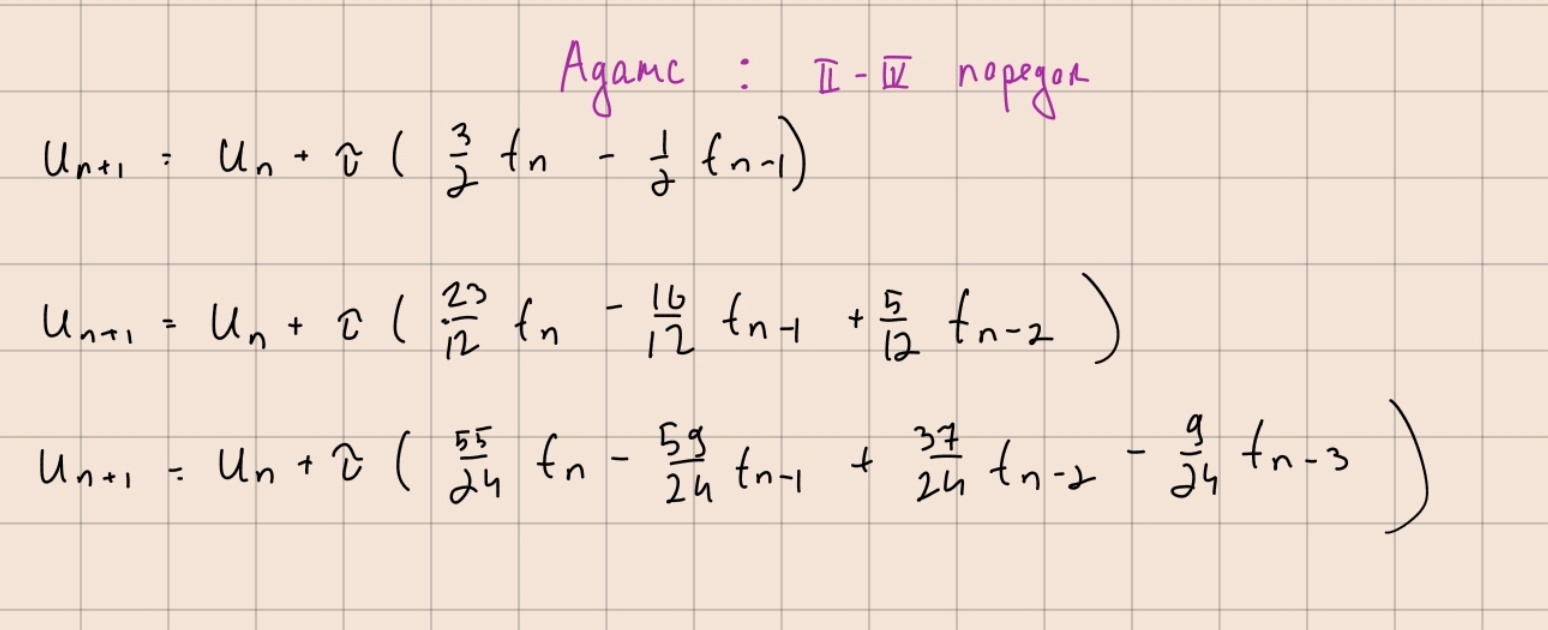 Адамс : II - IV поредок
u_{n+1} = u_n + τ ( 3/2 f_n - 1/2 f_{n-1} )
u_{n+1} = u_n + τ ( 23/12 f_n - 16/12 f_{n-1} + 5/12 f_{n-2} )
u_{n+1} = u_n + τ ( 55/24 f_n - 59/24 f_{n-1} + 37/24 f_{n-2} - 9/24 f_{n-3} )